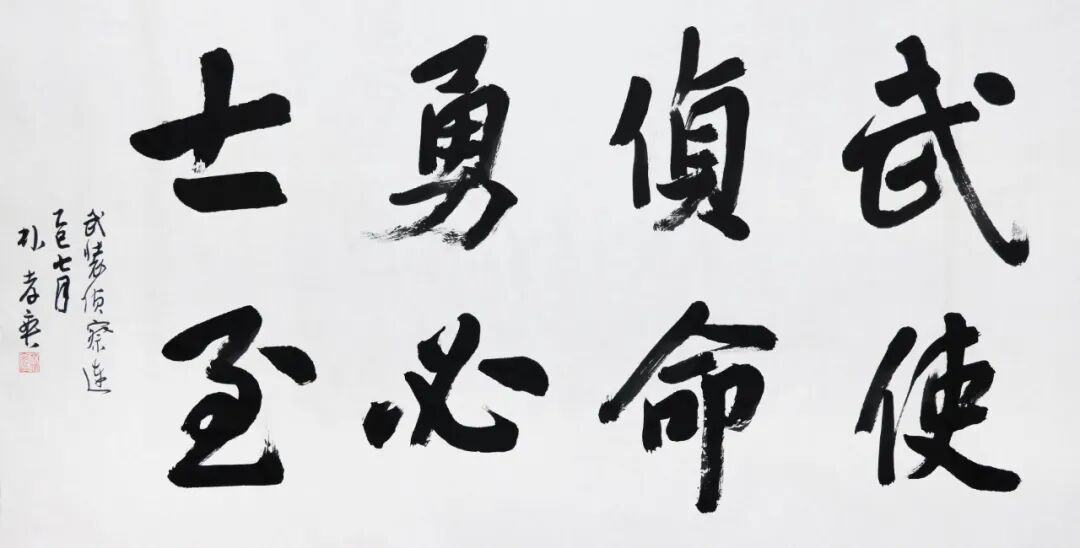 武偵勇士
使命必至
武装侦察连
乙巳七月